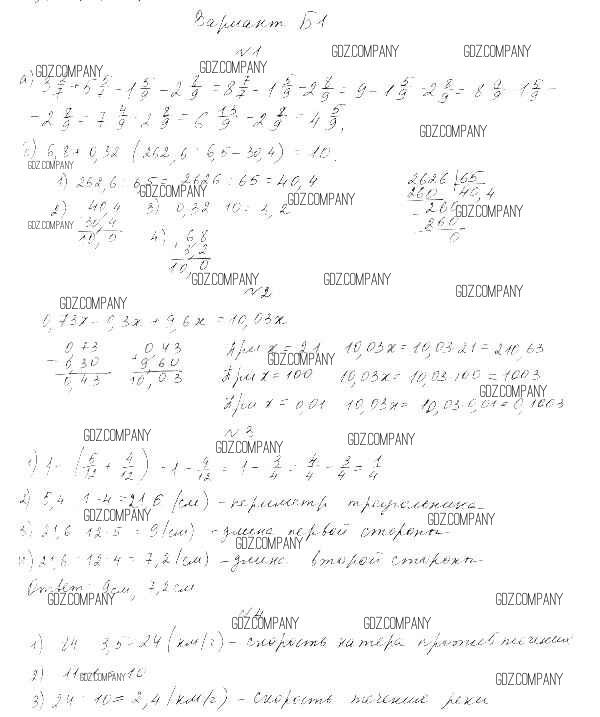 Вариант Б1
№1
GDZ.COMPANY GDZ.COMPANY
GDZ.COMPANY GDZ.COMPANY
а) 3 5/7 + 5 - 1 5/9 - 2 8/9 = 8 7/7 - 1 5/9 - 2 8/9 = 9 - 1 5/9 - 2 8/9 = 8 9/9 - 1 5/9 -
- 2 8/9 = 7 4/9 - 2 8/9 = 6 13/9 - 2 8/9 = 4 5/9.
GDZ.COMPANY
б) 6,8 + 0,32 (262,6 : 6,5 - 30,4) = 10.
GDZ.COMPANY
1) 262,6 : 6,5 = 2626 : 65 = 40,4
GDZ.COMPANY
2626 65
260 40,4
260
260
0
GDZ.COMPANY
2) 40,4
30,4
10,0
GDZ.COMPANY
3) 0,32 10 = 3,2
GDZ.COMPANY
4) 6,8
3,2
10,0
GDZ.COMPANY GDZ.COMPANY
№2
GDZ.COMPANY
GDZ.COMPANY
0,73x - 0,3x + 9,6x = 10,03x
0,73
- 0,30
0,43
0,43
+ 9,60
10,03
При x = 21 10,03x = 10,03·21 = 210,63
GDZ.COMPANY
При x = 100 10,03x = 10,03·100 = 1003
GDZ.COMPANY
При x = 0,01 10,03x = 10,03·0,01 = 0,1003
№3
GDZ.COMPANY GDZ.COMPANY
GDZ.COMPANY
1) 1 - (5/12 + 4/12) = 1 - 9/12 = 1 - 3/4 = 4/4 - 3/4 = 1/4
2) 5,4 : 1 · 4 = 21,6 (см) - периметр треугольника
GDZ.COMPANY GDZ.COMPANY
3) 21,6 12·5 = 9 (см) - длина первой стороны
GDZ.COMPANY
4) 21,6 : 12·4 = 7,2 (см) - длина второй стороны
Ответ: 9 см, 7,2 см
GDZ.COMPANY GDZ.COMPANY
№4
GDZ.COMPANY GDZ.COMPANY
1) 84 3,5 = 24 (км/г) - скорость катера против течения
2) 11 10
GDZ.COMPANY GDZ.COMPANY
3) 24 : 10 = 2,4 (км/г) - скорость течения реки